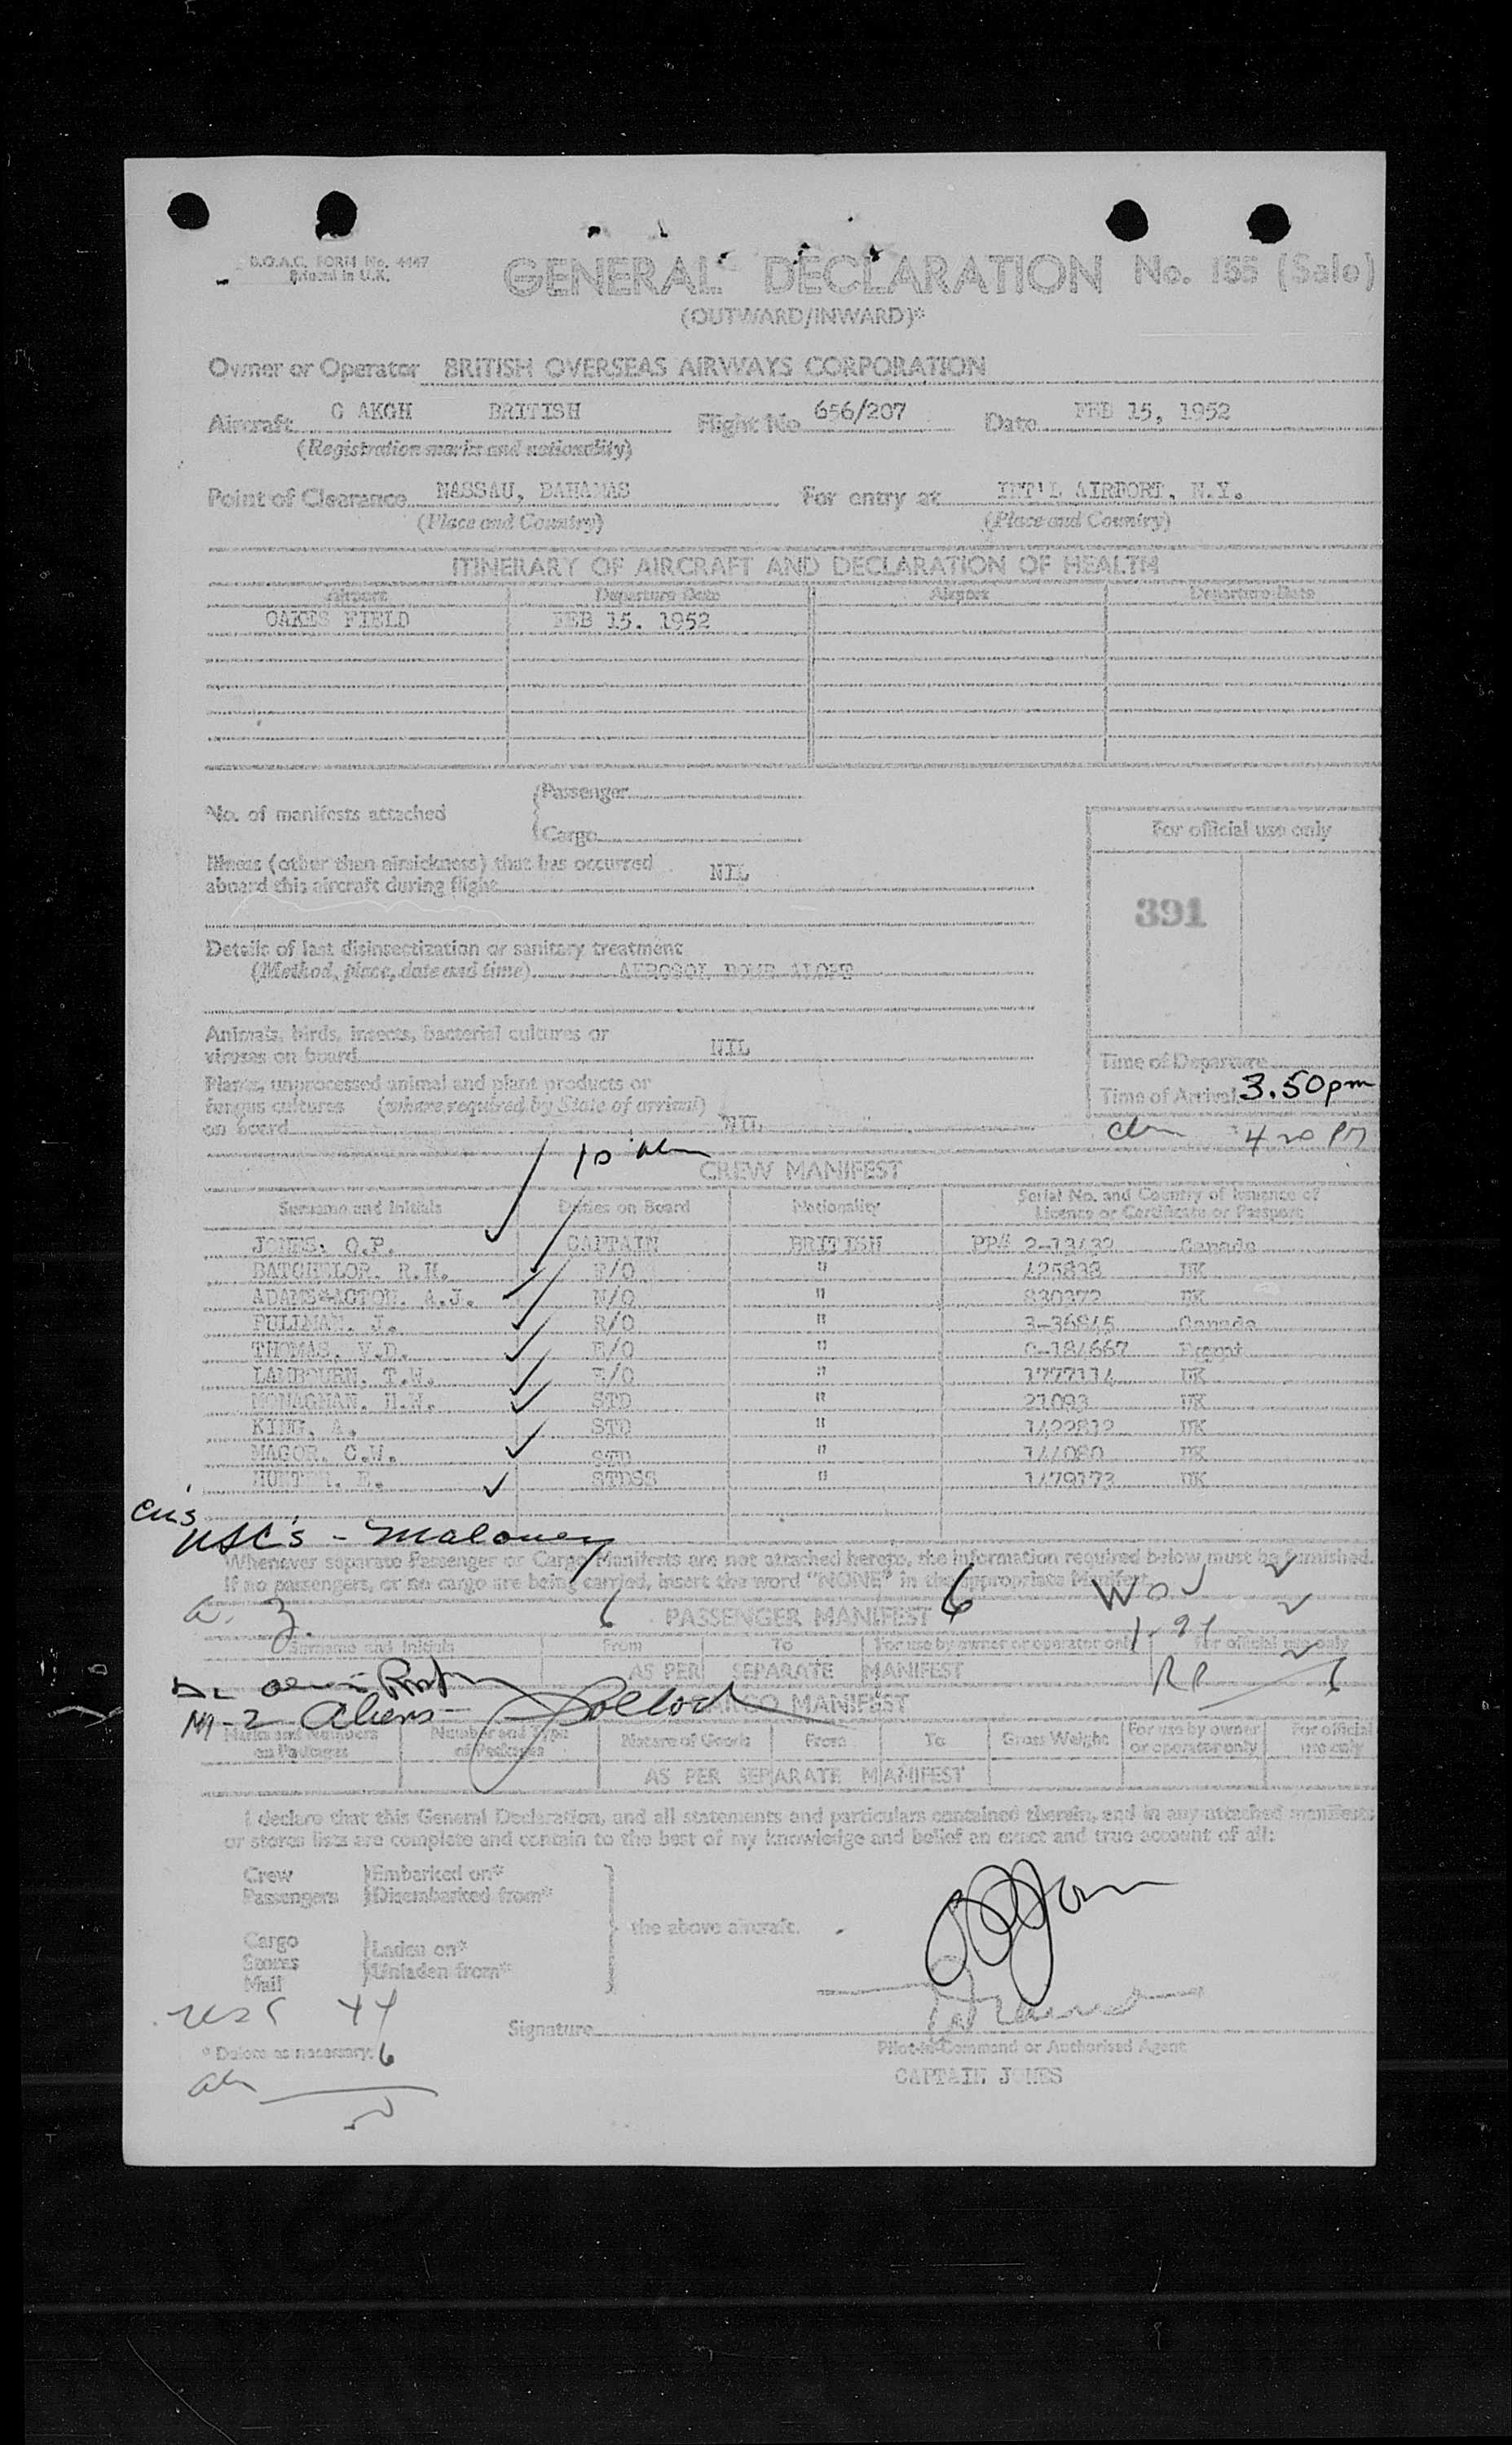 B.O.A.C. FORM No. 4447
Printed in U.K.
GENERAL DECLARATION No. 155 (Sale)
(OUTWARD/INWARD)*
Owner or Operator BRITISH OVERSEAS AIRWAYS CORPORATION
Aircraft G AKGH BRITISH Flight No 656/207 Date FEB 15, 1952
(Registration marks and nationality)
Point of Clearance NASSAU, BAHAMAS For entry at INT'L AIRPORT, N.Y.
(Place and Country) (Place and Country)
ITINERARY OF AIRCRAFT AND DECLARATION OF HEALTH
Airport Departure Date Airport Departure Date
OAKES FIELD FEB 15. 1952
No. of manifests attached
Passenger
Cargo
For official use only
Illness (other than airsickness) that has occurred
aboard this aircraft during flight NIL
391
Details of last disinsectization or sanitary treatment
(Method, place, date and time) AEROSOL BOMB ALOFT
Animals, birds, insects, bacterial cultures or
viruses on board NIL
Time of Departure
Plants, unprocessed animal and plant products or
fungus cultures (where required by State of arrival)
on board NIL
Time of Arrival 3.50pm
4 20 PM
10
CREW MANIFEST
Surname and Initials Duties on Board Nationality Serial No. and Country of Issuance of
Licence or Certificate or Passport
JONES. O.P. CAPTAIN BRITISH PP# 2-13432 Canada
BATCHELOR. R.H. F/O " 425839 UK
ADAMS*ACTON. A.J. N/O " 830372 UK
PULLMAN. J. R/O " 3-36845 Canada
THOMAS. V.D. E/O " C-184667 Egypt
LAMBOURN. T.W. E/O " 1777114 UK
MONAGHAN. H.W. STD " 21093 UK
KING. A. STD " 1422812 UK
MAGOR. C.W. STD " 144080 UK
HUNTER. E. STDSS " 1479173 UK
USC's - Maloney
Whenever separate Passenger or Cargo Manifests are not attached hereto, the information required below must be furnished.
If no passengers, or no cargo are being carried, insert the word "NONE" in the appropriate Manifest.
6 PASSENGER MANIFEST 6
Surname and Initials From To For use by owner or operator only For official use only
AS PER SEPARATE MANIFEST
2 Aliens - Pollock
CARGO MANIFEST
Marks and Numbers on Packages Number and Type of Packages Nature of Goods From To Gross Weight For use by owner or operator only For official use only
AS PER SEPARATE MANIFEST
I declare that this General Declaration, and all statements and particulars contained therein, and in any attached manifests
or stores lists are complete and contain to the best of my knowledge and belief an exact and true account of all:
Crew Embarked on*
Passengers Disembarked from*
the above aircraft.
Cargo Laden on*
Stores
Mail Unladen from*
OPJones
Signature
* Delete as necessary. 6
Pilot-in-Command or Authorised Agent
CAPTAIN JONES